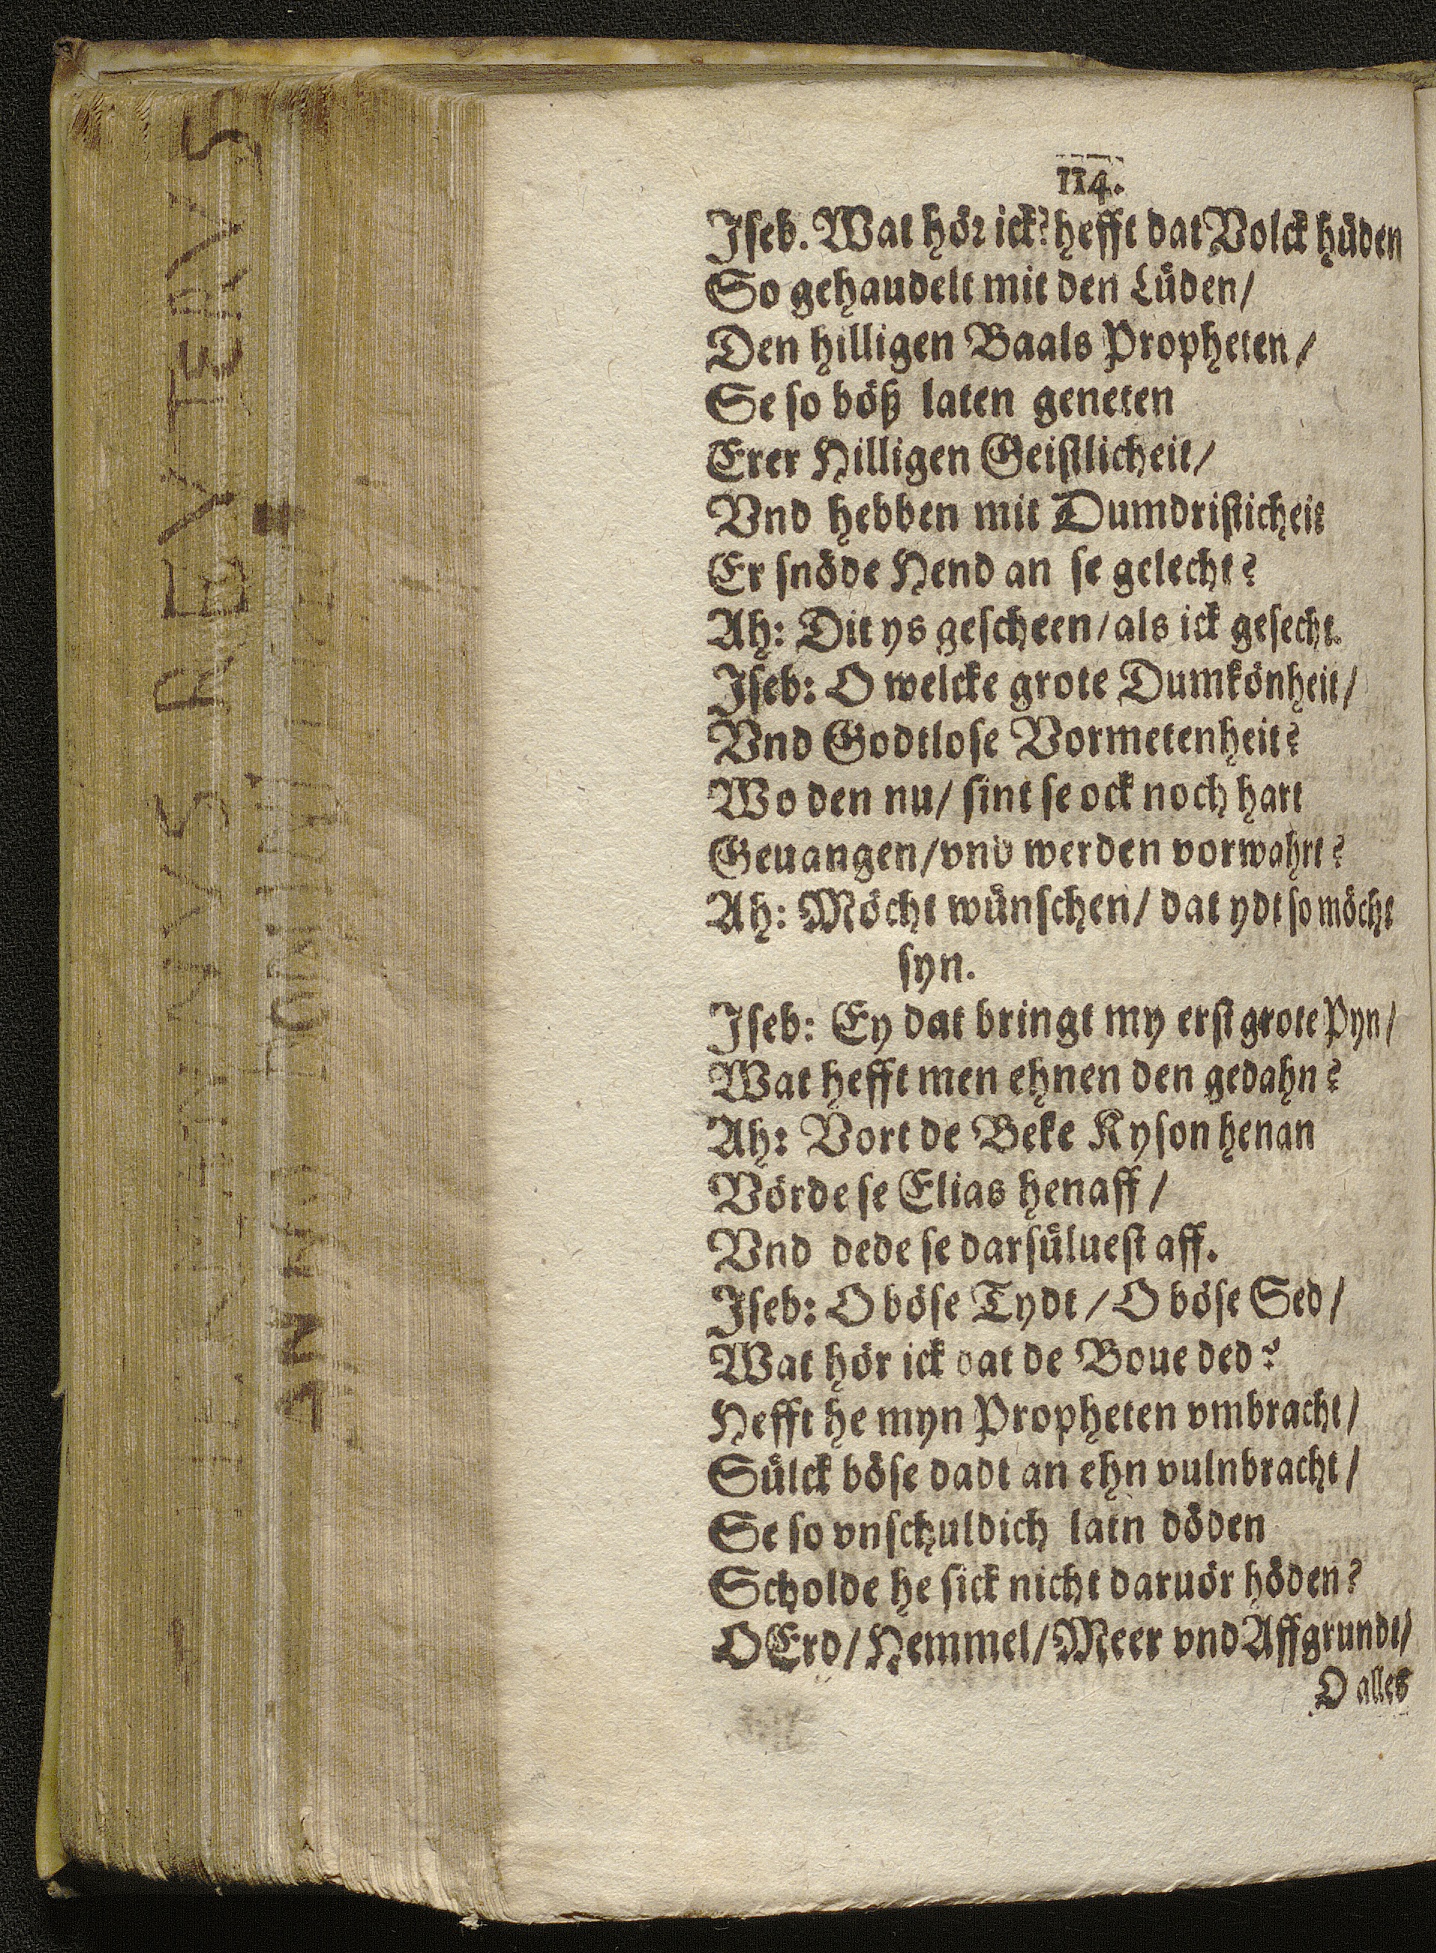 114.
Iſeb. Wat hör ick? hefft dat Volck hüden
So gehaudelt mit den Lüden/
Den hilligen Baals Propheten/
Se ſo böß laten geneten
Erer Hilligen Geiſtlicheit/
Vnd hebben mit Dumdriſticheit
Er ſnöde Hend an ſe gelecht?
Ah: Dit ys geſcheen/als ick geſecht.
Iſeb: O welcke grote Dumkönheit/
Vnd Godtloſe Vormetenheit?
Wo den nu/ ſint ſe ock noch hart
Geuangen/vnd werden vorwahrt?
Ah: Möcht wünſchen/ dat ydt ſo möcht
ſyn.
Iſeb: Ey dat bringt my erſt grote Pyn/
Wat hefft men ehnen den gedahn?
Ah: Vort de Beke Kyſon henan
Vörde ſe Elias henaff/
Vnd dede ſe darſülueſt aff.
Iſeb: O böſe Tydt/O böſe Sed/
Wat hör ick dat de Boue ded?
Hefft he myn Propheten vmbracht/
Sülck böſe dadt an ehn vulnbracht/
Se ſo vnſchuldich latn döden
Scholde he ſick nicht daruör höden?
O Erd/Hemmel/Meer vnd Affgrundt/
O alles
REVTERVS
ANNO DOMINI